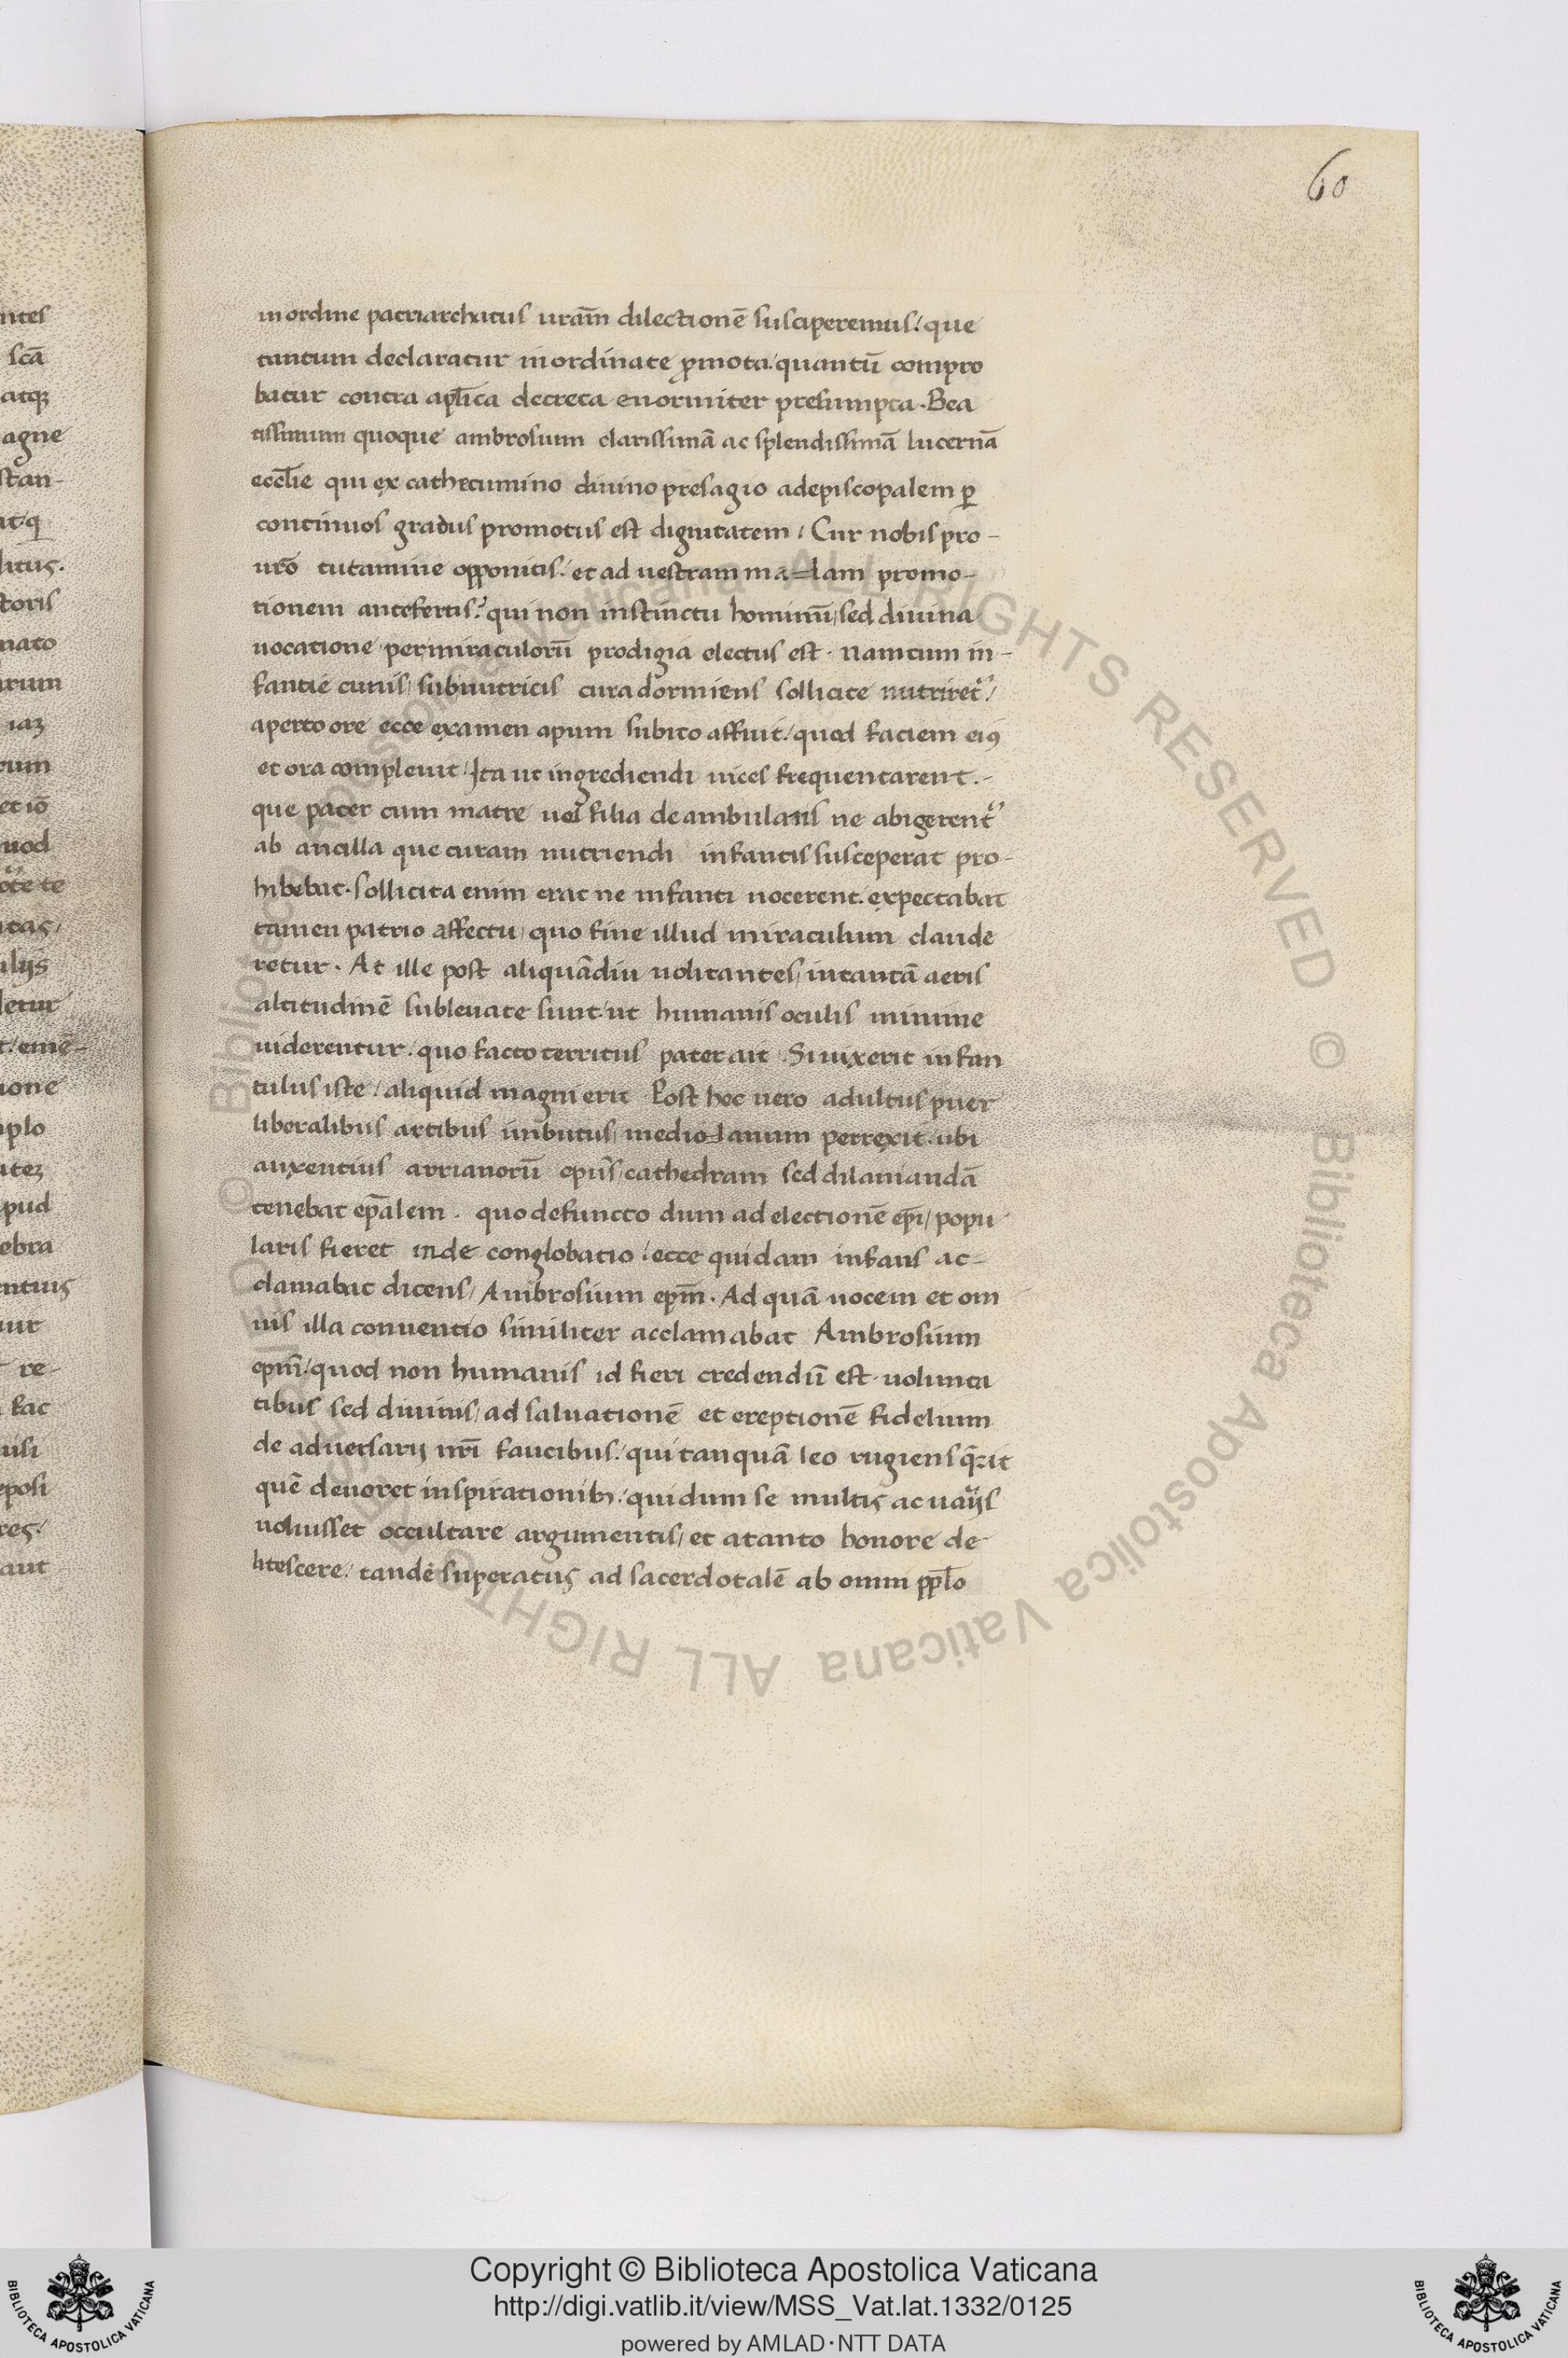 60
in ordine patriarchatus uram̄ dilectionē susciperemus: que
tantum declaratur inordinate p̱mota: quantū compro
batur contra apl̄ica decreta enormiter presumpta. Bea
tissimum quoque ambrosium clarissimā ac splendissimā lucernā
eccl̄ie qui ex cathecumino diuino presagio ad episcopalem ꝑ
continuos gradus promotus est dignitatem: Cur nobis pro-
urō tutamine opponitis: et ad uestram ma=lam promo-
tionem antefertis: qui non instinctu hominū, sed diuina
uocatione per miraculorū prodigia electus est. nam cum in-
fantie cunis, sub nutricis cura dormiens sollicite nutriret᷑:
aperto ore ecce examen apum subito affuit: quod faciem eiꝯ
et ora compleuit: Ita ut ingrediendi uices frequentarent.-
que pater cum matre uel filia deambulans ne abigerent᷑
ab ancilla que curam nutriendi infantis susceperat pro-
hibebat. sollicita enim erat ne infanti nocerent. expectabat
tamen patrio affectu, quo fine illud miraculum claude
retur. At ille post aliquādiu uolitantes, in tantā aeris
altitudinē subleuate sunt: ut humanis oculis minime
uiderentur. quo facto territus pater ait. Si uixerit infan
tulus iste: aliquid magni erit Post hec uero adultus puer
liberalibus artibus imbutus, medio=lanum perrexit. ubi
auxentius arrianorū epūs, cathedram sed dilaniandā
tenebat ep̄alem. quo defuncto dum ad electionē ep̄i, popu
laris fieret inde conglobatio: ecce quidam infans ac-
clamabat dicens, Ambrosium ep̄m. Ad quā uocem et om
nis illa conuentio similiter acclamabat Ambrosium
ep̄m: quod non humanis id fieri credendū est. uolunta
tibus sed diuinis, ad saluationē et ereptionē fidelium
de aduersarij nr̄i faucibus: qui tanquā leo rugiens q̄rit
quē deuoret inspirationibꝫ: qui dum se multis ac uarijs
uoluisset occultare argumentis, et a tanto honore de-
litescere: tandē superatus ad sacerdotalē ab omni pp̄lo
ntes
scā
atqꝫ
agne
stan-
litus.
toris
nato
arum
iaꝫ
rum
et iō
uod
itas,
letur
emē-
ione
uplo
pud
ebra
ur
re-
fac
posi
aut
© Biblioteca Apostolica Vaticana ALL RIGHTS RESERVED © Biblioteca Apostolica Vaticana ALL RIGHTS RESERVED
Copyright © Biblioteca Apostolica Vaticana
http://digi.vatlib.it/view/MSS_Vat.lat.1332/0125
powered by AMLAD·NTT DATA
BIBLIOTECA APOSTOLICA VATICANA
BIBLIOTECA APOSTOLICA VATICANA